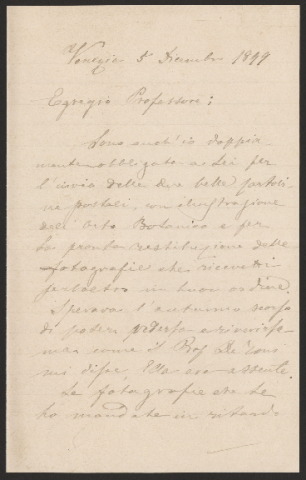 Venezia 5 Dicembre 1899
Egregio Professore:
Sono anch'io doppia
mente obbligato a Lei per
l'invio delle due belle cartoli
ne postali, con illustrazione
dell'Orto Botanico e per
la pronta restituzione delle
fotografie che ricevetti
in buon ordine.
Sperava l'autunno scorso
di poterla
ma come il Prof. De Toni
mi disse, Ella era assente.
Le fotografie che Le
ho mandate in ritardo